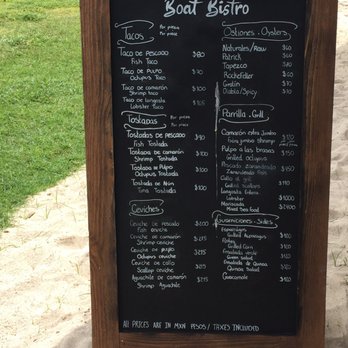 Boat Bistro
Tacos Por pieza
Per piece
Taco de pescado $80
Fish Taco
Taco de Pulpo $70
Octopus Taco
Taco de camarón $70
Shrimp taco
Taco de langosta $105
Lobster Taco
Tostadas Por pieza
Per piece
Tostadas de pescado $90
Fish Tostada
Tostada de camarón
Shrimp Tostada
Tostada de Pulpo
Octopus Tostada
Tostada de Atún
Tuna Tostada
Ceviches
Ceviche de pescado $200
Fish ceviche
Ceviche de camarón $275
Shrimp ceviche
Ceviche de pulpo $275
Octopus ceviche
Ceviche de callo $275
Scallop ceviche
Aguachile de camarón $275
Shrimp Aguachile
Ostiones . Oysters
Naturales/Raw $60
Patrick $60
Tapezco $70
Rockefeller $60
Gratin $70
Diabla/Spicy $70
Parrilla . Grill
Camarón extra Jumbo
Extra jumbo Shrimp
Pulpo a las brasas
Grilled octopus
Pescado Zarandeado
Zarandeado fish
Callo al grill
Grilled scallops
Langosta entera
Lobster
Mariscada
Mixed Sea food
Guarniciones . Sides
Esparragos
Grilled Asparagus
Elotes
Grilled Corn
Ensalada verde
Green salad
Ensalada de Quinoa
Quinoa Salad
Guacamole
All prices are in MXN pesos/ Taxes included